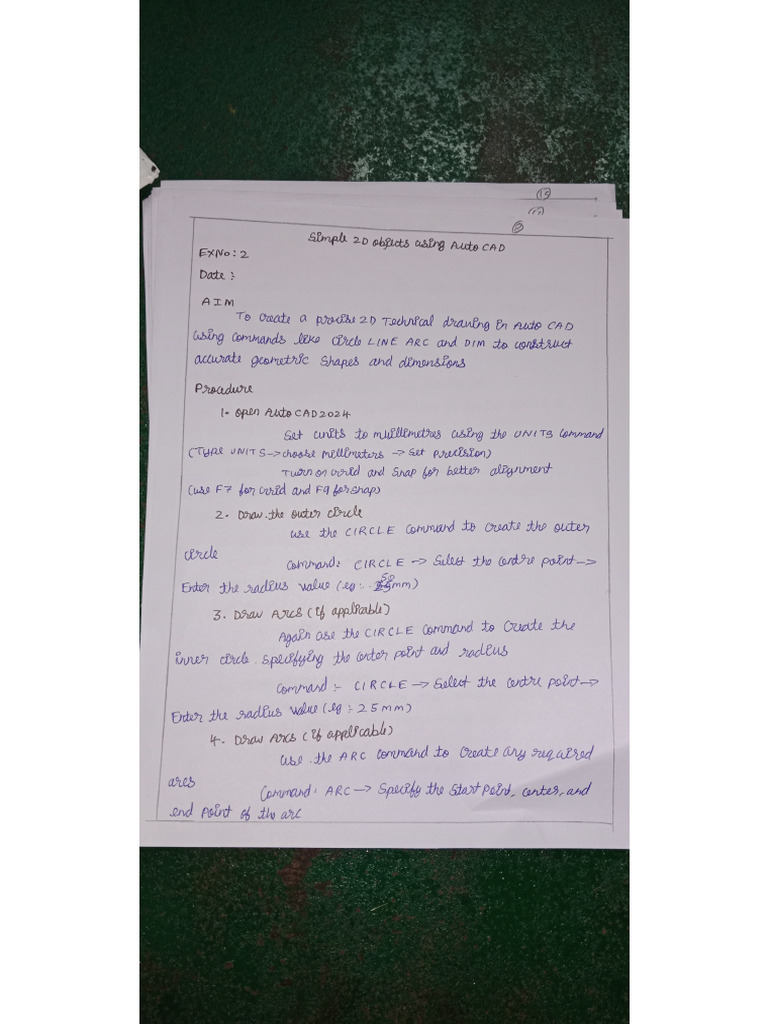 13
12
Simple 2D objects using Auto CAD
EXNO: 2
Date :
AIM
To create a precise 2D Technical drawing in Auto CAD
using commands like circle LINE ARC and DIM to construct
accurate geometric shapes and dimensions
Procedure
1. Open Auto CAD2024
Set units to millimetres using the UNITS command
(TYPE UNITS → choose millimeters → Set precision)
Turn on Grid and Snap for better alignment
(use F7 for Grid and F9 for snap)
2. Draw the outer circle
use the CIRCLE command to create the outer
circle
Command: CIRCLE → Select the centre point →
Enter the radius value (eg: 50mm)
3. Draw Arcs (if applicable)
Again use the CIRCLE command to create the
inner circle specifying the center point and radius
Command :- CIRCLE → Select the centre point →
Enter the radius value (eg :- 25mm)
4. Draw Arcs (if applicable)
use the ARC command to create any required
arcs
Command: ARC → Specify the start point, center, and
end point of the arc